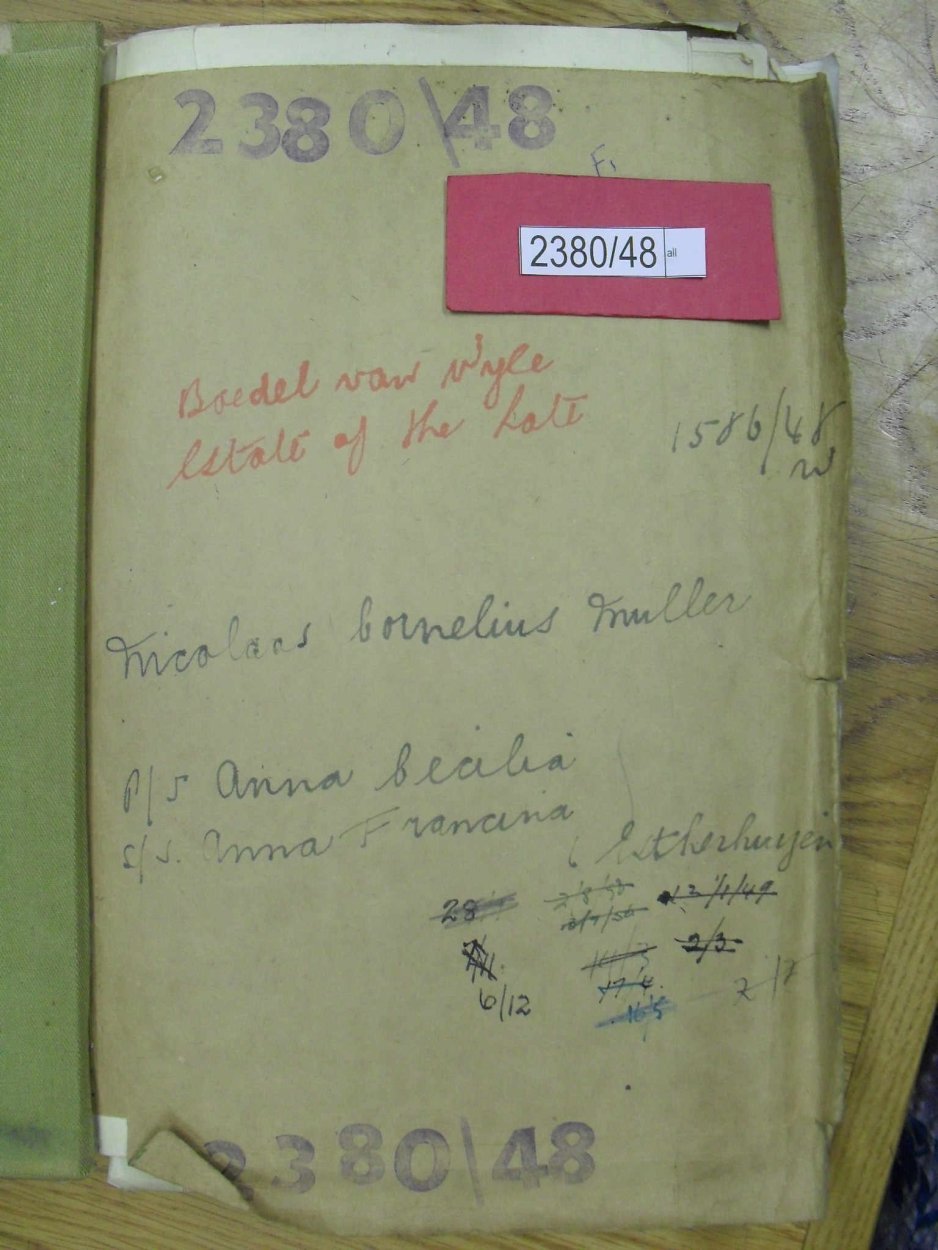 2380\48
F.
2380/48 all
Boedel van wyle
Estate of the Late
1586/48
W
Nicolaas Cornelius Muller
P/S Anna Cecilia
S/S. Anna Francina
Estherhuijen
28
12/1/49
2/3
6/12
17/4
16/5
2380\48